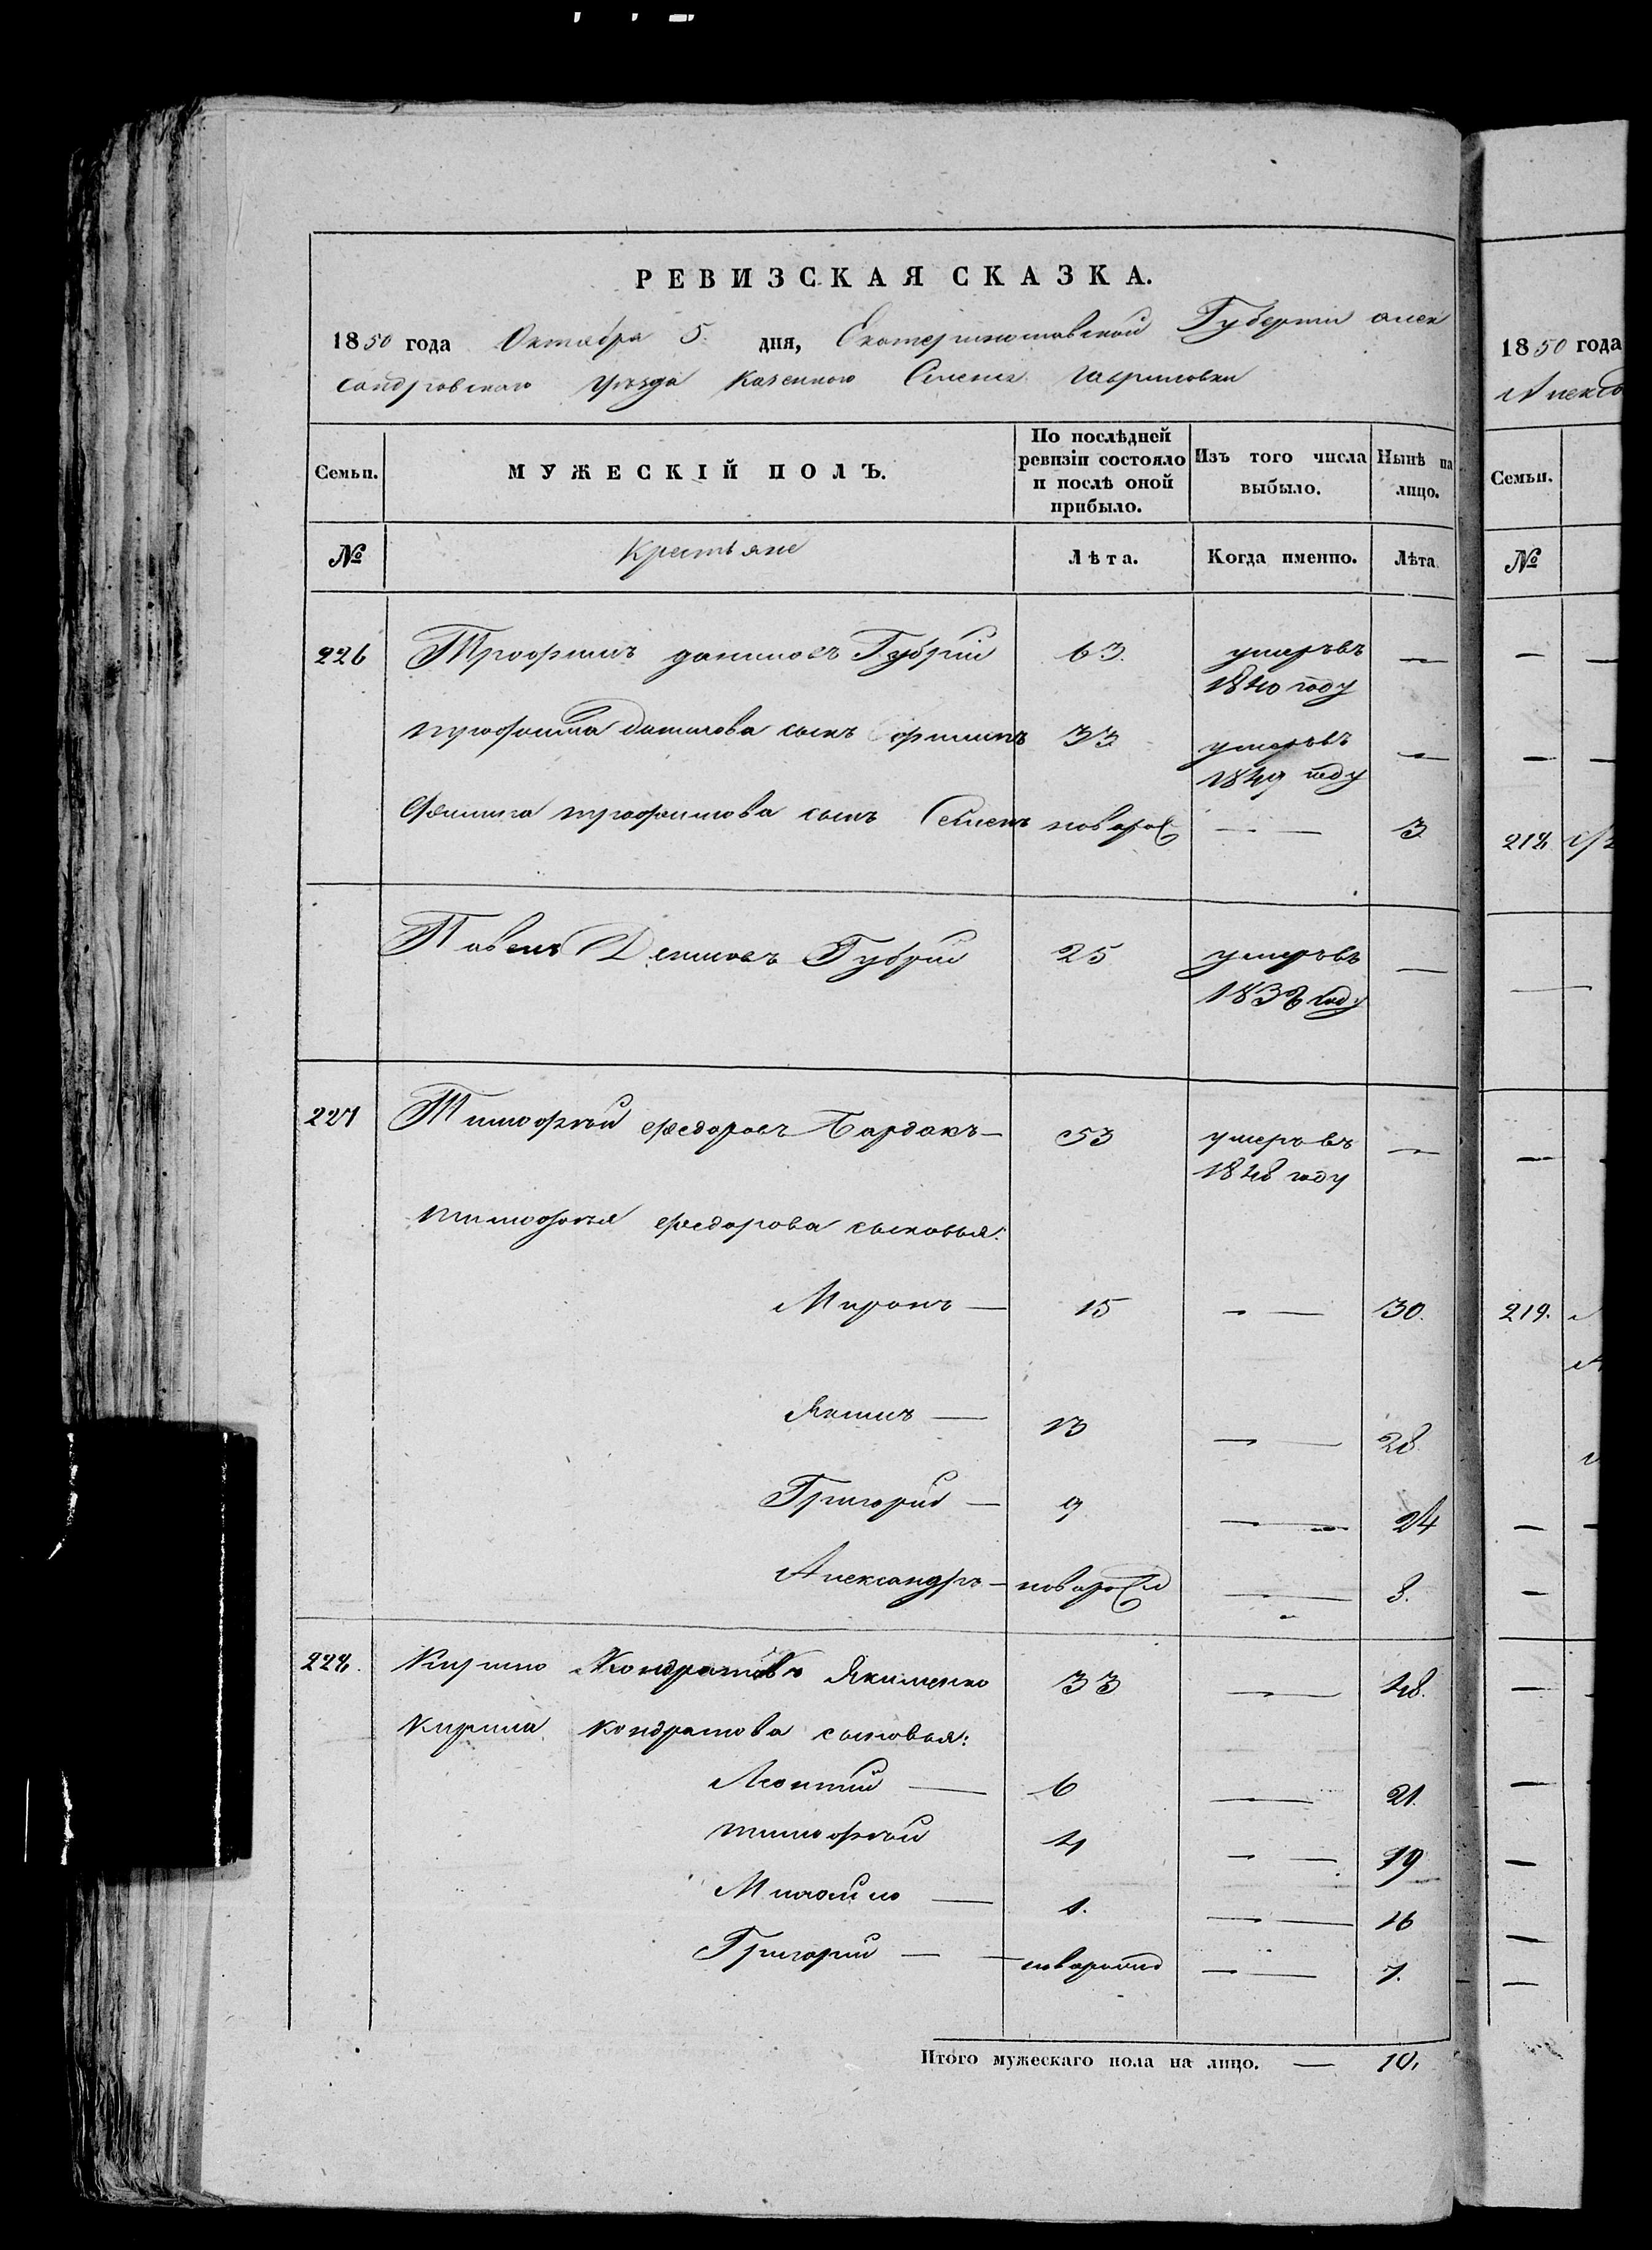 РЕВИЗСКАЯ СКАЗКА.
1850 года Октября 5. дня, Екатеринославской Губернии алек
сандровскаго уѣзда Казенного Селения гавриловки
Семьи. МУЖЕСКІЙ ПОЛЪ. По послѣдней ревизіи состояло и послѣ оной прибыло. Изъ того числа выбыло. Нынѣ на лицо.
№ Крестьяне Лѣта. Когда именно. Лѣта
226 Трофимъ даниловъ Губрій 63. умеръ въ —
1840 году
трофима данилова сынъ 33 умеръ въ —
1849 году
трофимова сынъ Семенъ новорож — — 3
Павелъ Губрій 25 умеръ въ —
1838 году
227 Тимофѣй федоровъ Бардакъ — 53 умеръ въ —
1848 году
тимофѣя федорова сыновья:
Миронъ — 15 — — 30.
Якимъ — 13 — — 28.
Григорій — 9 — — 24
Александръ — новорож — 8.
228. Кирило Кондратовъ Якименко 33 — — 48.
Кирила кондратова сыновья:
Леонтий — 6 — 21.
тимофѣй 4 — — 19
Михайло — 1. — — 16
Григорий — — — — 7.
Итого мужескаго пола на лицо. — 10,
1850 года
Алекса
Семьи.
№
218
219.